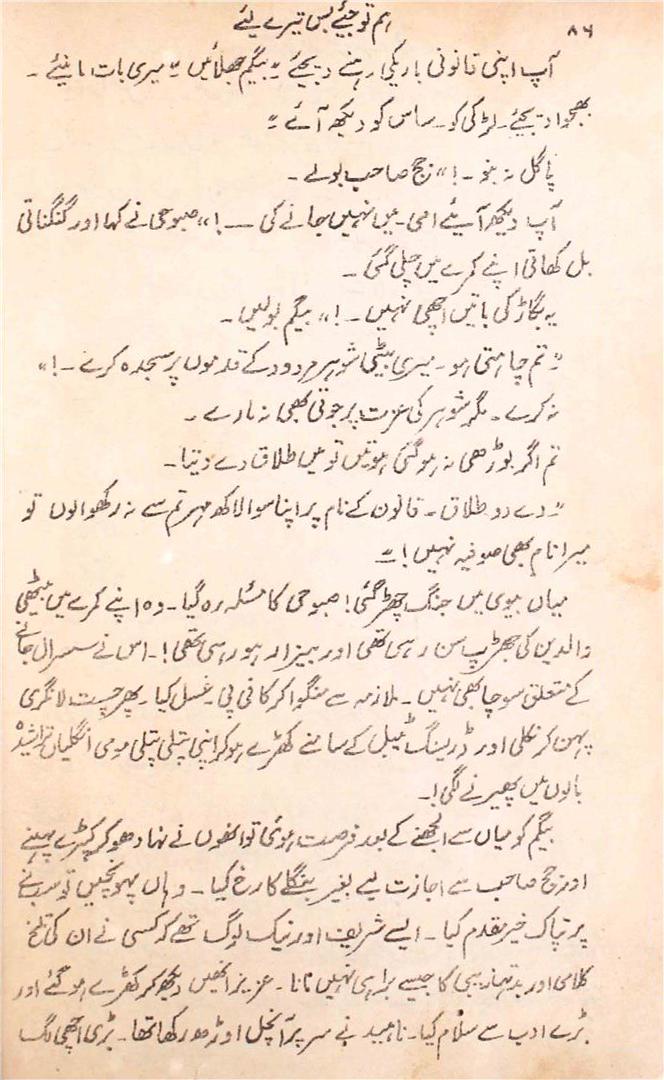 ۸۶
ہم تو جئے بس تیرے لیئے
آپ اپنی قانونی باریکی رہنے دیجئے۔" بیگم جھلائیں۔" میری بات مانیئے۔
بھجوا دیجئے۔ لڑکی کو۔ ساس کو دیکھ آئے۔"
پاگل نہ بنو۔!" جج صاحب بولے۔
آپ دیکھ آیئے امی۔ میں نہیں جانے کی ——!" صبوحی نے کہا اور گنگناتی
بل کھاتی اپنے کمرے میں چلی گئی۔
یہ بگاڑ کی باتیں اچھی نہیں۔!" بیگم بولیں۔
"تم چاہتی ہو۔ میری بیٹی شوہر مردود کے قدموں پر سجدہ کرے۔!"
نہ کرے۔ مگر شوہر کی عزت پر جوتی بھی نہ مارے۔
تم اگر بوڑھی نہ ہو گئی ہوتیں تو میں طلاق دے دیتا۔
"دے دو طلاق۔ قانون کے نام پر اپنا سوا لاکھ مہر تم سے نہ رکھوا لوں تو
میرا نام بھی صوفیہ نہیں!"
میاں بیوی میں جنگ چھڑ گئی! صبوحی کا مسئلہ رہ گیا۔ وہ اپنے کمرے میں بیٹھی
والدین کی جھڑپ سن رہی تھی اور بیزار ہو رہی تھی!۔ اس نے سسرال جانے
کے متعلق سوچا بھی نہیں۔ ملازمہ سے منگوا کر کافی پی۔ غسل کیا۔ پھر چست لانگری
پہن کر نکلی اور ڈریسنگ ٹیبل کے سامنے کھڑے ہو کر اپنی پتلی پتلی مومی انگلیاں تراشیدہ
بالوں میں پھیرنے لگی!۔
بیگم کو میاں سے الجھنے کے بعد فرصت ہوئی تو انھوں نے نہا دھو کر کپڑے پہنے
اور جج صاحب سے اجازت لیے بغیر بنگلے کا رخ کیا۔ وہاں پہونچیں تو سب نے
پر تپاک خیر مقدم کیا۔ ایسے شریف اور نیک لوگ تھے کہ کسی نے ان کی تلخ
کلامی اور بدتہذیبی کا جیسے برا ہی نہیں مانا۔ عزیز انھیں دیکھ کر کھڑے ہو گئے اور
بڑے ادب سے سلام کیا۔ ناہید نے سر پر آنچل اوڑھ رکھا تھا۔ بڑی اچھی لگ